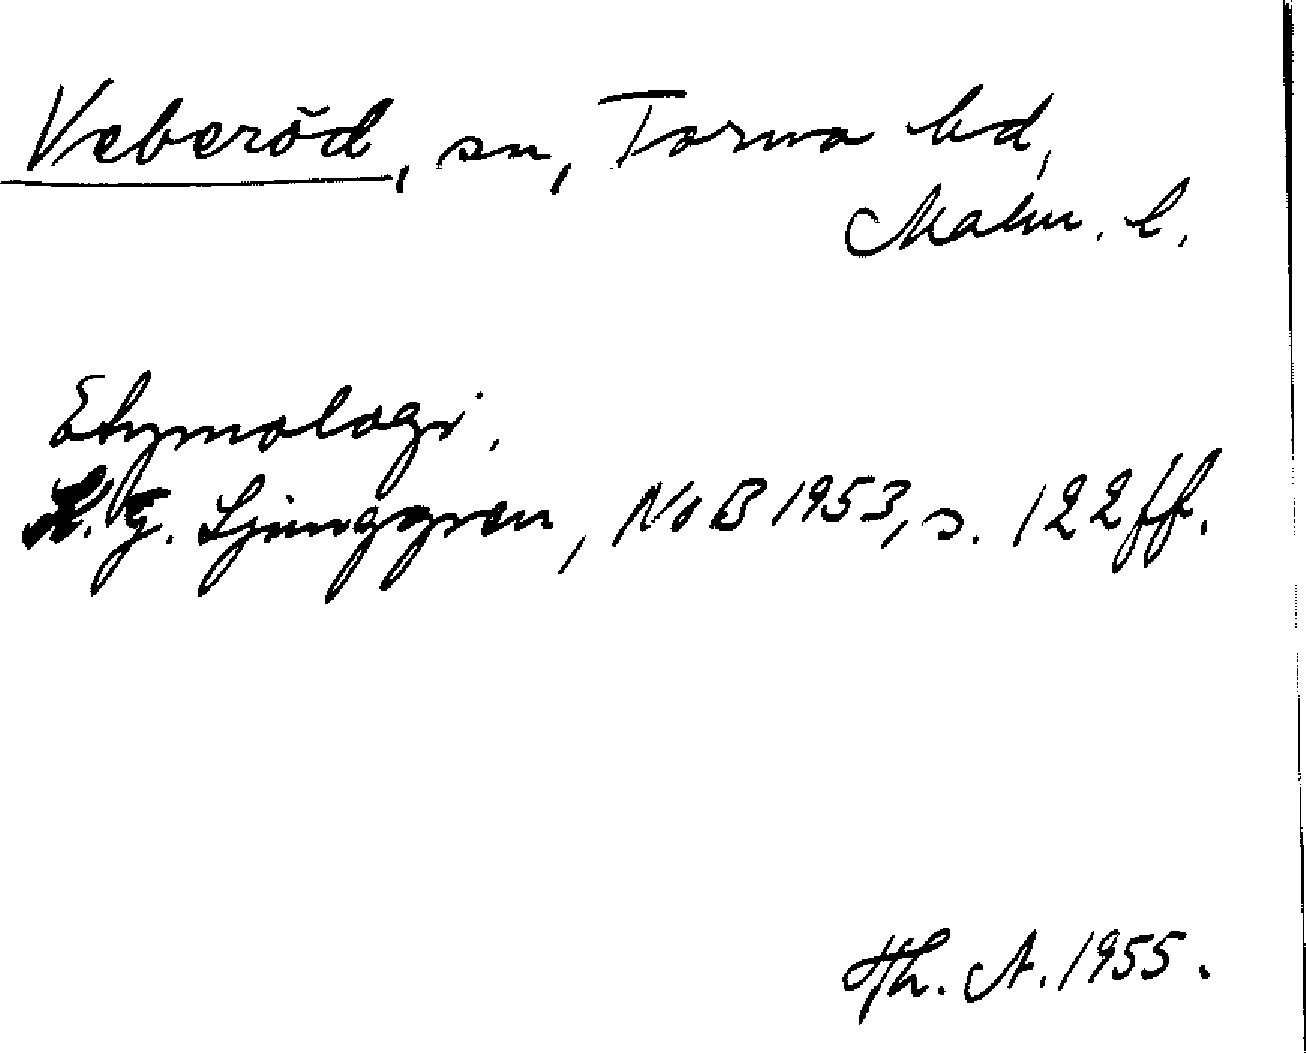 Veberöd, sn, Torna hd,
Malm. l.
Etymologi.
K. G. Ljunggren, NoB 1953, s. 122 ff.
Hh. A. 1955.